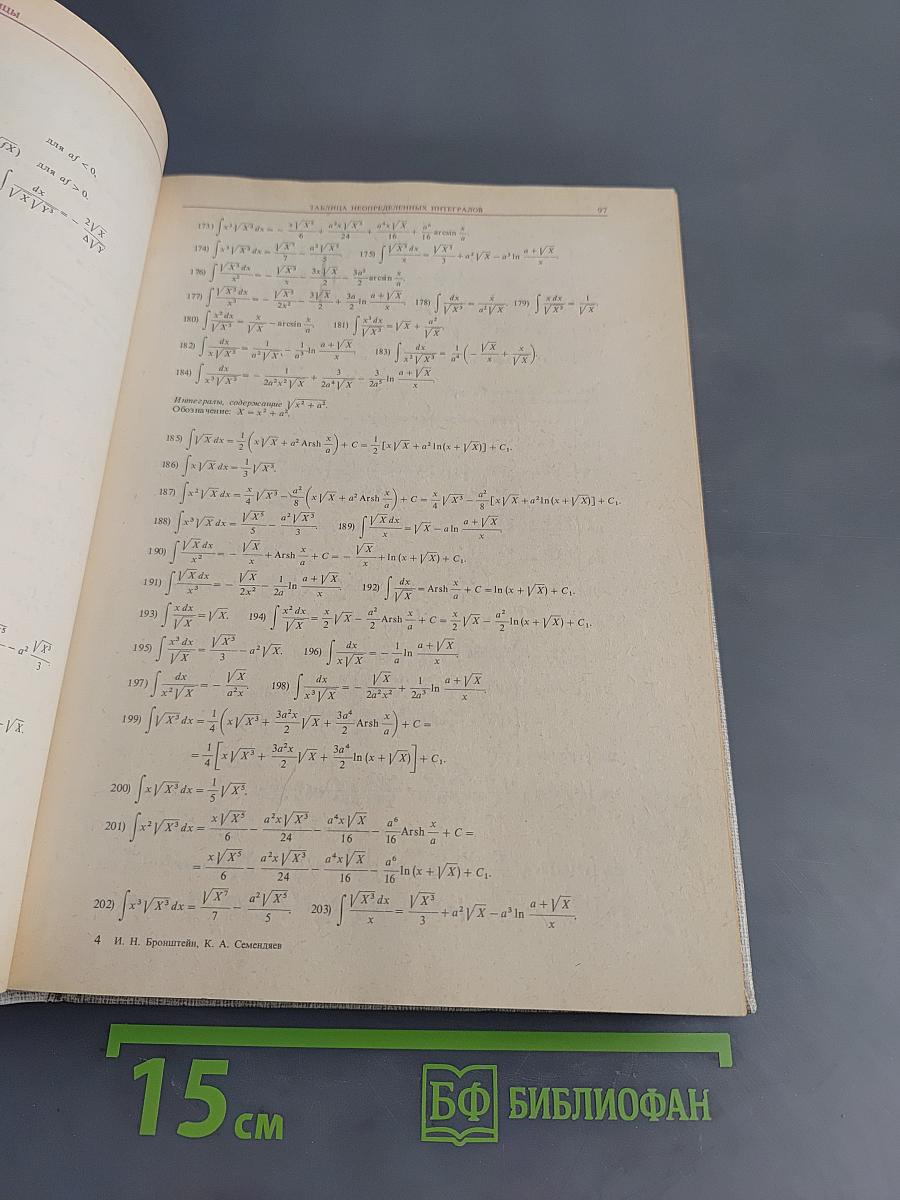 ицы
для af < 0,
fX) для af > 0.
∫ dx/(√X √Y³) = − 2√X/(Δ√Y)
− a² √X³/3.
√X.
ТАБЛИЦА НЕОПРЕДЕЛЕННЫХ ИНТЕГРАЛОВ 97
173) ∫x²√X³ dx = − x√X⁵/6 + a²x√X³/24 + a⁴x√X/16 + a⁶/16 arcsin x/a.
174) ∫x³√X³ dx = √X⁷/7 − a²√X⁵/5. 175) ∫ √X³ dx/x = √X³/3 + a²√X − a³ ln (a + √X)/x.
176) ∫ √X³ dx/x² = − √X³/x − 3x√X/2 − 3a²/2 arcsin x/a.
177) ∫ √X³ dx/x³ = − √X³/2x² − 3√X/2 + 3a/2 ln (a + √X)/x. 178) ∫ dx/√X³ = x/(a²√X). 179) ∫ x dx/√X³ = 1/√X.
180) ∫ x² dx/√X³ = x/√X − arcsin x/a. 181) ∫ x³ dx/√X³ = √X + a²/√X.
182) ∫ dx/(x√X³) = 1/(a²√X) − 1/a³ ln (a + √X)/x. 183) ∫ dx/(x²√X³) = 1/a⁴ (− √X/x + x/√X).
184) ∫ dx/(x³√X³) = − 1/(2a²x²√X) + 3/(2a⁴√X) − 3/2a⁵ ln (a + √X)/x.
Интегралы, содержащие √x² + a².
Обозначение: X = x² + a².
185) ∫√X dx = 1/2 (x√X + a² Arsh x/a) + C = 1/2 [x√X + a² ln (x + √X)] + C₁.
186) ∫x√X dx = 1/3 √X³.
187) ∫x²√X dx = x/4 √X³ − a²/8 (x√X + a² Arsh x/a) + C = x/4 √X³ − a²/8 [x√X + a² ln (x + √X)] + C₁.
188) ∫x³√X dx = √X⁵/5 − a²√X³/3. 189) ∫ √X dx/x = √X − a ln (a + √X)/x.
190) ∫ √X dx/x² = − √X/x + Arsh x/a + C = − √X/x + ln (x + √X) + C₁.
191) ∫ √X dx/x³ = − √X/2x² − 1/2a ln (a + √X)/x. 192) ∫ dx/√X = Arsh x/a + C = ln (x + √X) + C₁.
193) ∫ x dx/√X = √X. 194) ∫ x² dx/√X = x/2 √X − a²/2 Arsh x/a + C = x/2 √X − a²/2 ln (x + √X) + C₁.
195) ∫ x³ dx/√X = √X³/3 − a²√X. 196) ∫ dx/(x√X) = − 1/a ln (a + √X)/x.
197) ∫ dx/(x²√X) = − √X/a²x. 198) ∫ dx/(x³√X) = − √X/2a²x² + 1/2a³ ln (a + √X)/x.
199) ∫√X³ dx = 1/4 (x√X³ + 3a²x/2 √X + 3a⁴/2 Arsh x/a) + C =
= 1/4 [x√X³ + 3a²x/2 √X + 3a⁴/2 ln (x + √X)] + C₁.
200) ∫x√X³ dx = 1/5 √X⁵.
201) ∫x²√X³ dx = x√X⁵/6 − a²x√X³/24 − a⁴x√X/16 − a⁶/16 Arsh x/a + C =
= x√X⁵/6 − a²x√X³/24 − a⁴x√X/16 − a⁶/16 ln (x + √X) + C₁.
202) ∫x³√X³ dx = √X⁷/7 − a²√X⁵/5. 203) ∫ √X³ dx/x = √X³/3 + a²√X − a³ ln (a + √X)/x.
4 И. Н. Бронштейн, К. А. Семендяев
15 см
БФ БИБЛИОФАН